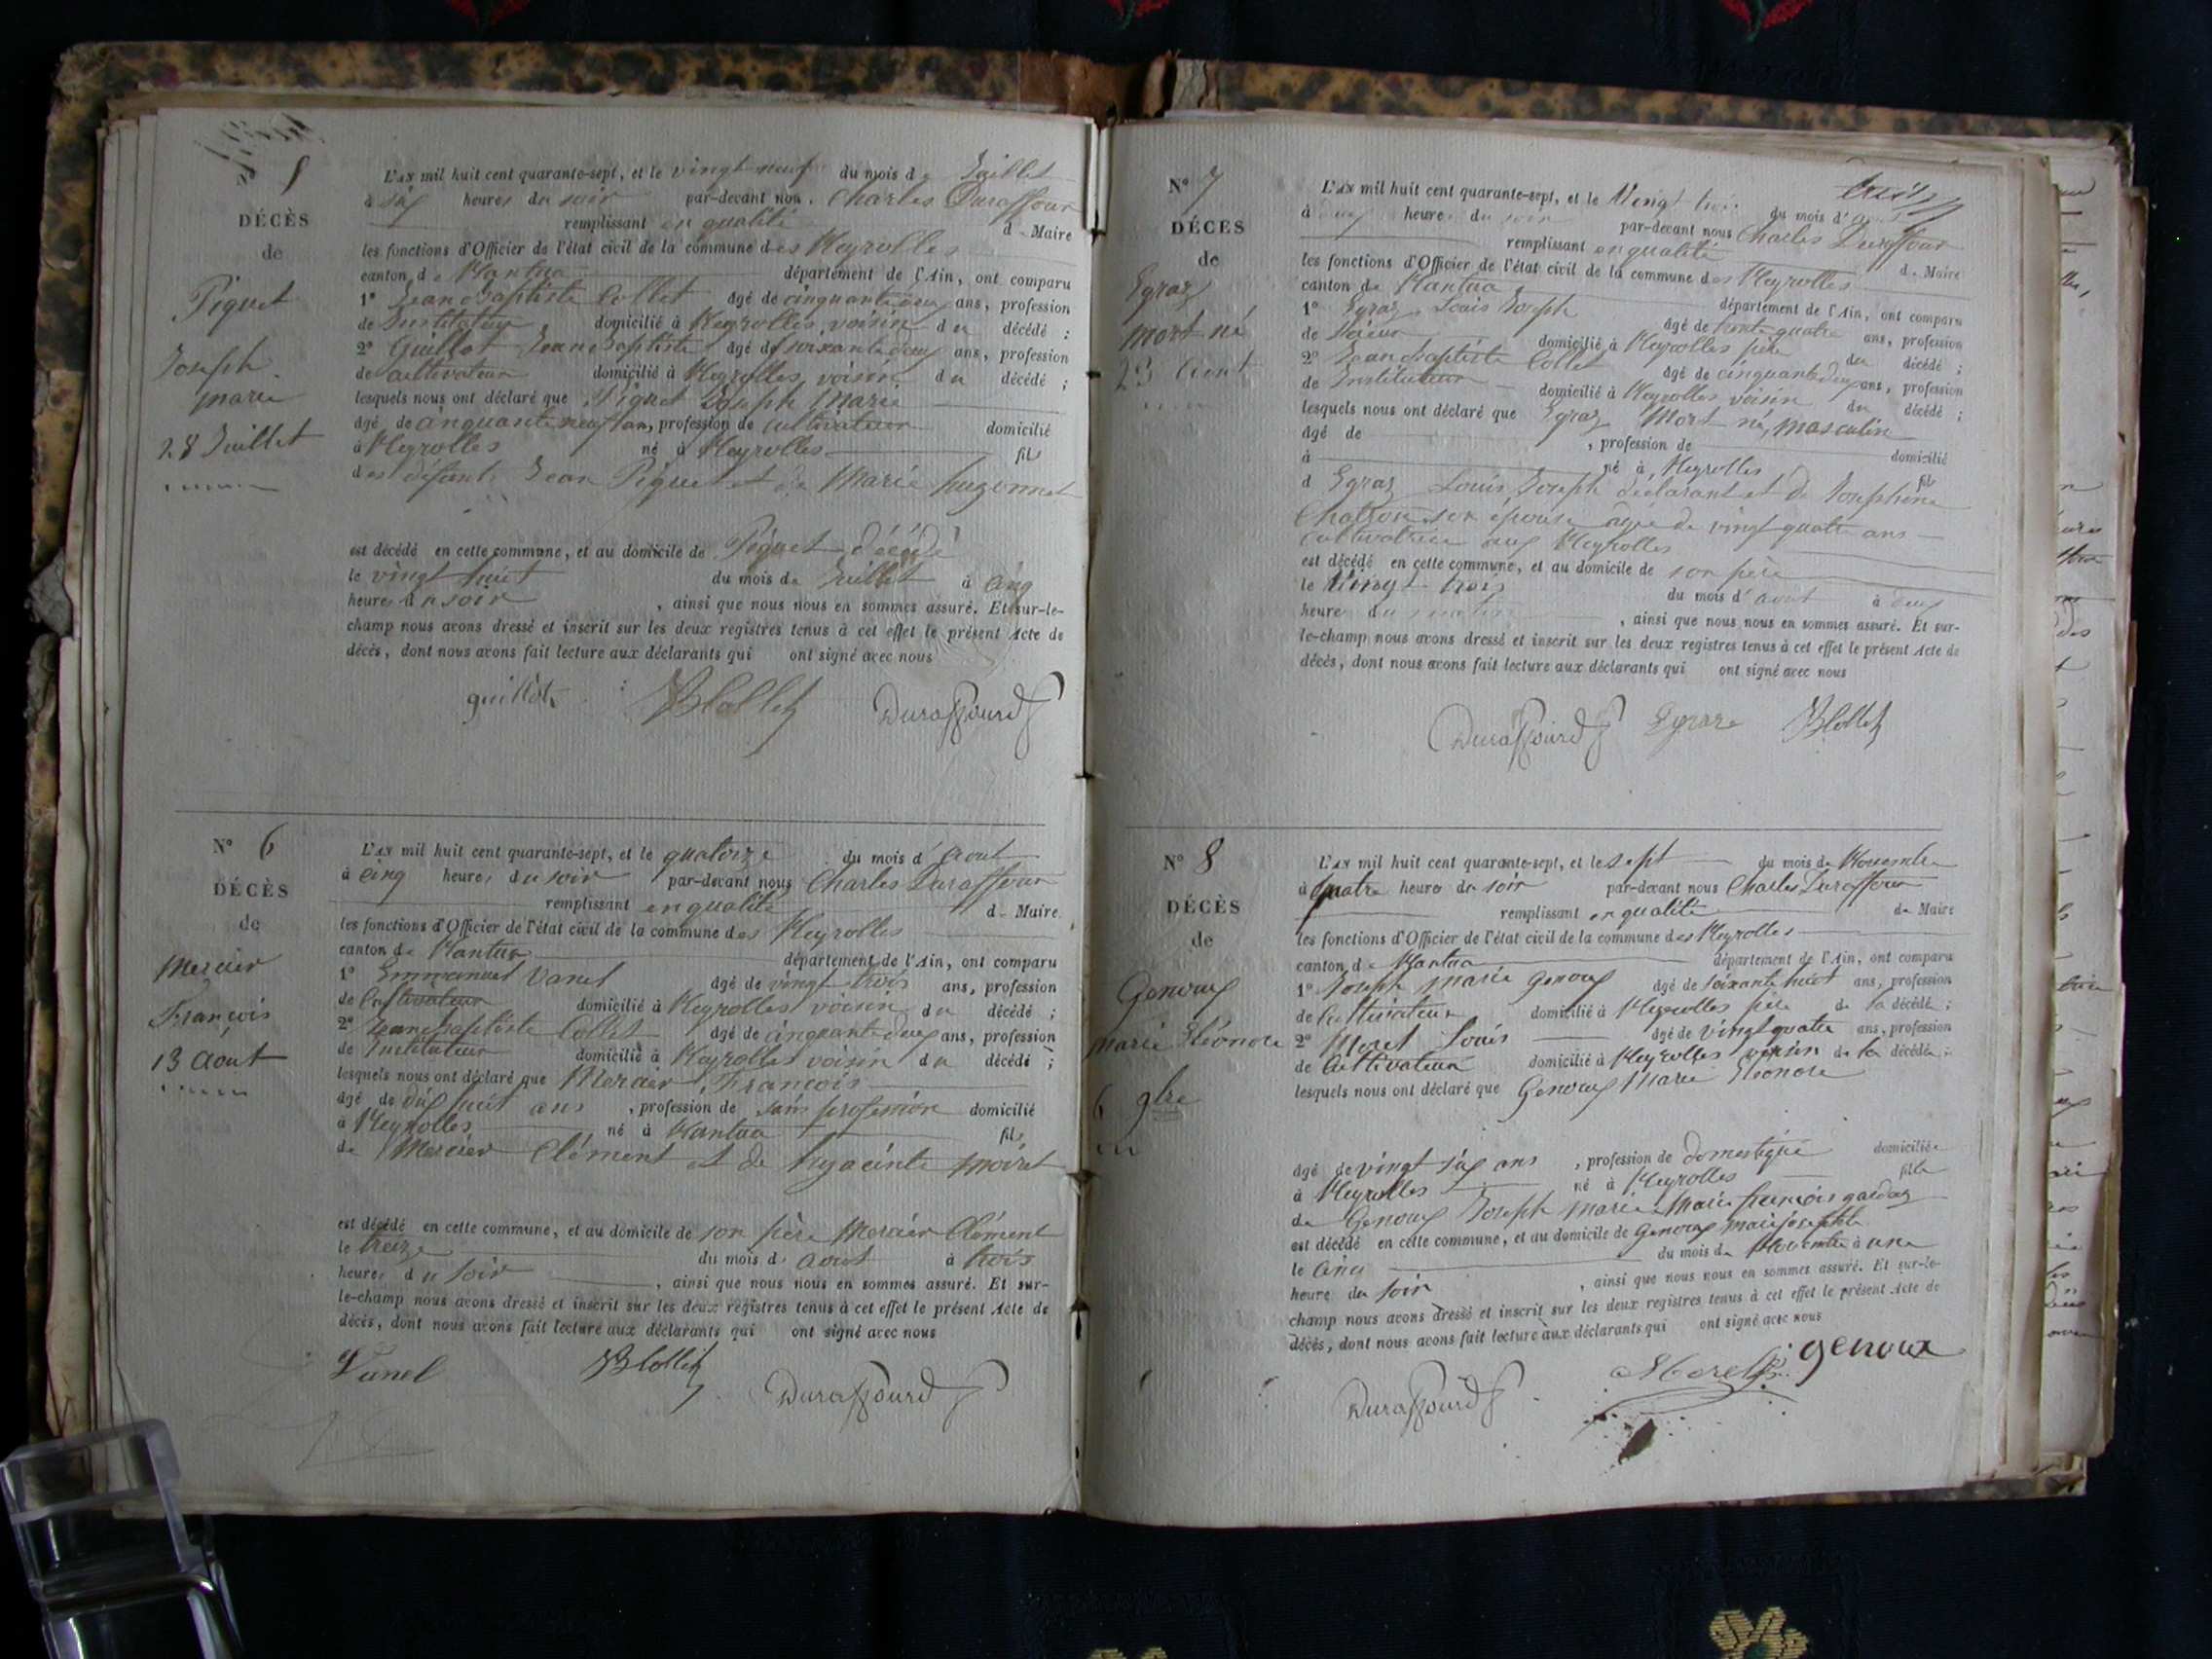 N° 5
DÉCÈS
de
Piquet
Joseph
marie
28 Juillet
L'AN mil huit cent quarante-sept, et le vingt neuf du mois de Juillet
à six heures du soir par-devant nous Charles Duraffour
remplissant en qualité de Maire
les fonctions d'Officier de l'état civil de la commune des Neyrolles
canton de Nantua département de l'Ain, ont comparu
1° Jean Baptiste Collet âgé de cinquante deux ans, profession
de Instituteur domicilié à Neyrolles voisin du décédé ;
2° Guillot Jean Baptiste âgé de soixante deux ans, profession
de cultivateur domicilié à Neyrolles voisin du décédé ;
lesquels nous ont déclaré que Piquet Joseph Marie
âgé de cinquante neuf ans, profession de cultivateur domicilié
à Neyrolles né à Neyrolles fils
des défunts Jean Piquet et de Marie hugonnet
est décédé en cette commune, et au domicile de Piquet décédé
le vingt huit du mois de Juillet à cinq
heures du soir , ainsi que nous nous en sommes assuré. Et sur-le-
champ nous avons dressé et inscrit sur les deux registres tenus à cet effet le présent Acte de
décès, dont nous avons fait lecture aux déclarants qui ont signé avec nous
guillot JBCollet Duraffourd
N° 6
DÉCÈS
de
Mercier
François
13 aout
L'AN mil huit cent quarante-sept, et le quatorze du mois d'aout
à cinq heures du soir par-devant nous Charles Duraffour
remplissant en qualité de Maire
les fonctions d'Officier de l'état civil de la commune des Neyrolles
canton de Nantua département de l'Ain, ont comparu
1° Emmanuel Vanel âgé de vingt trois ans, profession
de Cultivateur domicilié à Neyrolles voisin du décédé ;
2° Jean Baptiste Collet âgé de cinquante deux ans, profession
de Instituteur domicilié à Neyrolles voisin du décédé ;
lesquels nous ont déclaré que Mercier François
âgé de dix huit ans , profession de sans profession domicilié
à Neyrolles né à Nantua fils
de Mercier Clément et de hyacinte moiret
est décédé en cette commune, et au domicile de son père Mercier Clément
le treize du mois d'aout à trois
heures du soir , ainsi que nous nous en sommes assuré. Et sur-
le-champ nous avons dressé et inscrit sur les deux registres tenus à cet effet le présent Acte de
décès, dont nous avons fait lecture aux déclarants qui ont signé avec nous
Vanel JBCollet Duraffourd
N° 7
DÉCÈS
de
Egraz
mort né
23 Aout
L'AN mil huit cent quarante-sept, et le Vingt trois du mois d'aout
à deux heures du soir par-devant nous Charles Duraffour
remplissant en qualité de Maire
les fonctions d'Officier de l'état civil de la commune des Neyrolles
canton de Nantua département de l'Ain, ont comparu
1° Egraz Louis Joseph âgé de trente quatre ans, profession
de domicilié à Neyrolles père du décédé ;
2° Jean Baptiste Collet âgé de cinquante deux ans, profession
de Instituteur domicilié à Neyrolles voisin du décédé ;
lesquels nous ont déclaré que Egraz Mort né, masculin
âgé de , profession de domicilié
à né à Neyrolles fils
d Egraz Louis Joseph déclarant et de Josephine
son épouse agée de vingt quatre ans
Cultivatrice aux Neyrolles
est décédé en cette commune, et au domicile de son père
le Vingt trois du mois d'aout à deux
heures du matin , ainsi que nous nous en sommes assuré. Et sur-
le-champ nous avons dressé et inscrit sur les deux registres tenus à cet effet le présent Acte de
décès, dont nous avons fait lecture aux déclarants qui ont signé avec nous
Duraffourd Egraz JBCollet
N° 8
DÉCÈS
de
Genoux
marie Eléonore
6 9bre
L'AN mil huit cent quarante-sept, et le sept du mois de Novembre
à quatre heures du soir par-devant nous Charles Duraffour
remplissant en qualité de Maire
les fonctions d'Officier de l'état civil de la commune des Neyrolles
canton de Nantua département de l'Ain, ont comparu
1° Joseph marie genoux âgé de soixante huit ans, profession
de Cultivateur domicilié à Neyrolles père de la décédée ;
2° Morel Louis âgé de vingt quatre ans, profession
de Cultivateur domicilié à Neyrolles voisin de la décédée ;
lesquels nous ont déclaré que Genoux Marie Eleonore
âgé de vingt six ans , profession de domestique domiciliée
à Neyrolles né à Neyrolles fille
de Genoux Joseph marie Marie françois
est décédé en cette commune, et au domicile de Genoux marie joseph
le du mois de Novembre à une
heure du soir , ainsi que nous nous en sommes assuré. Et sur-le-
champ nous avons dressé et inscrit sur les deux registres tenus à cet effet le présent Acte de
décès, dont nous avons fait lecture aux déclarants qui ont signé avec nous
Duraffourd Morel genoux